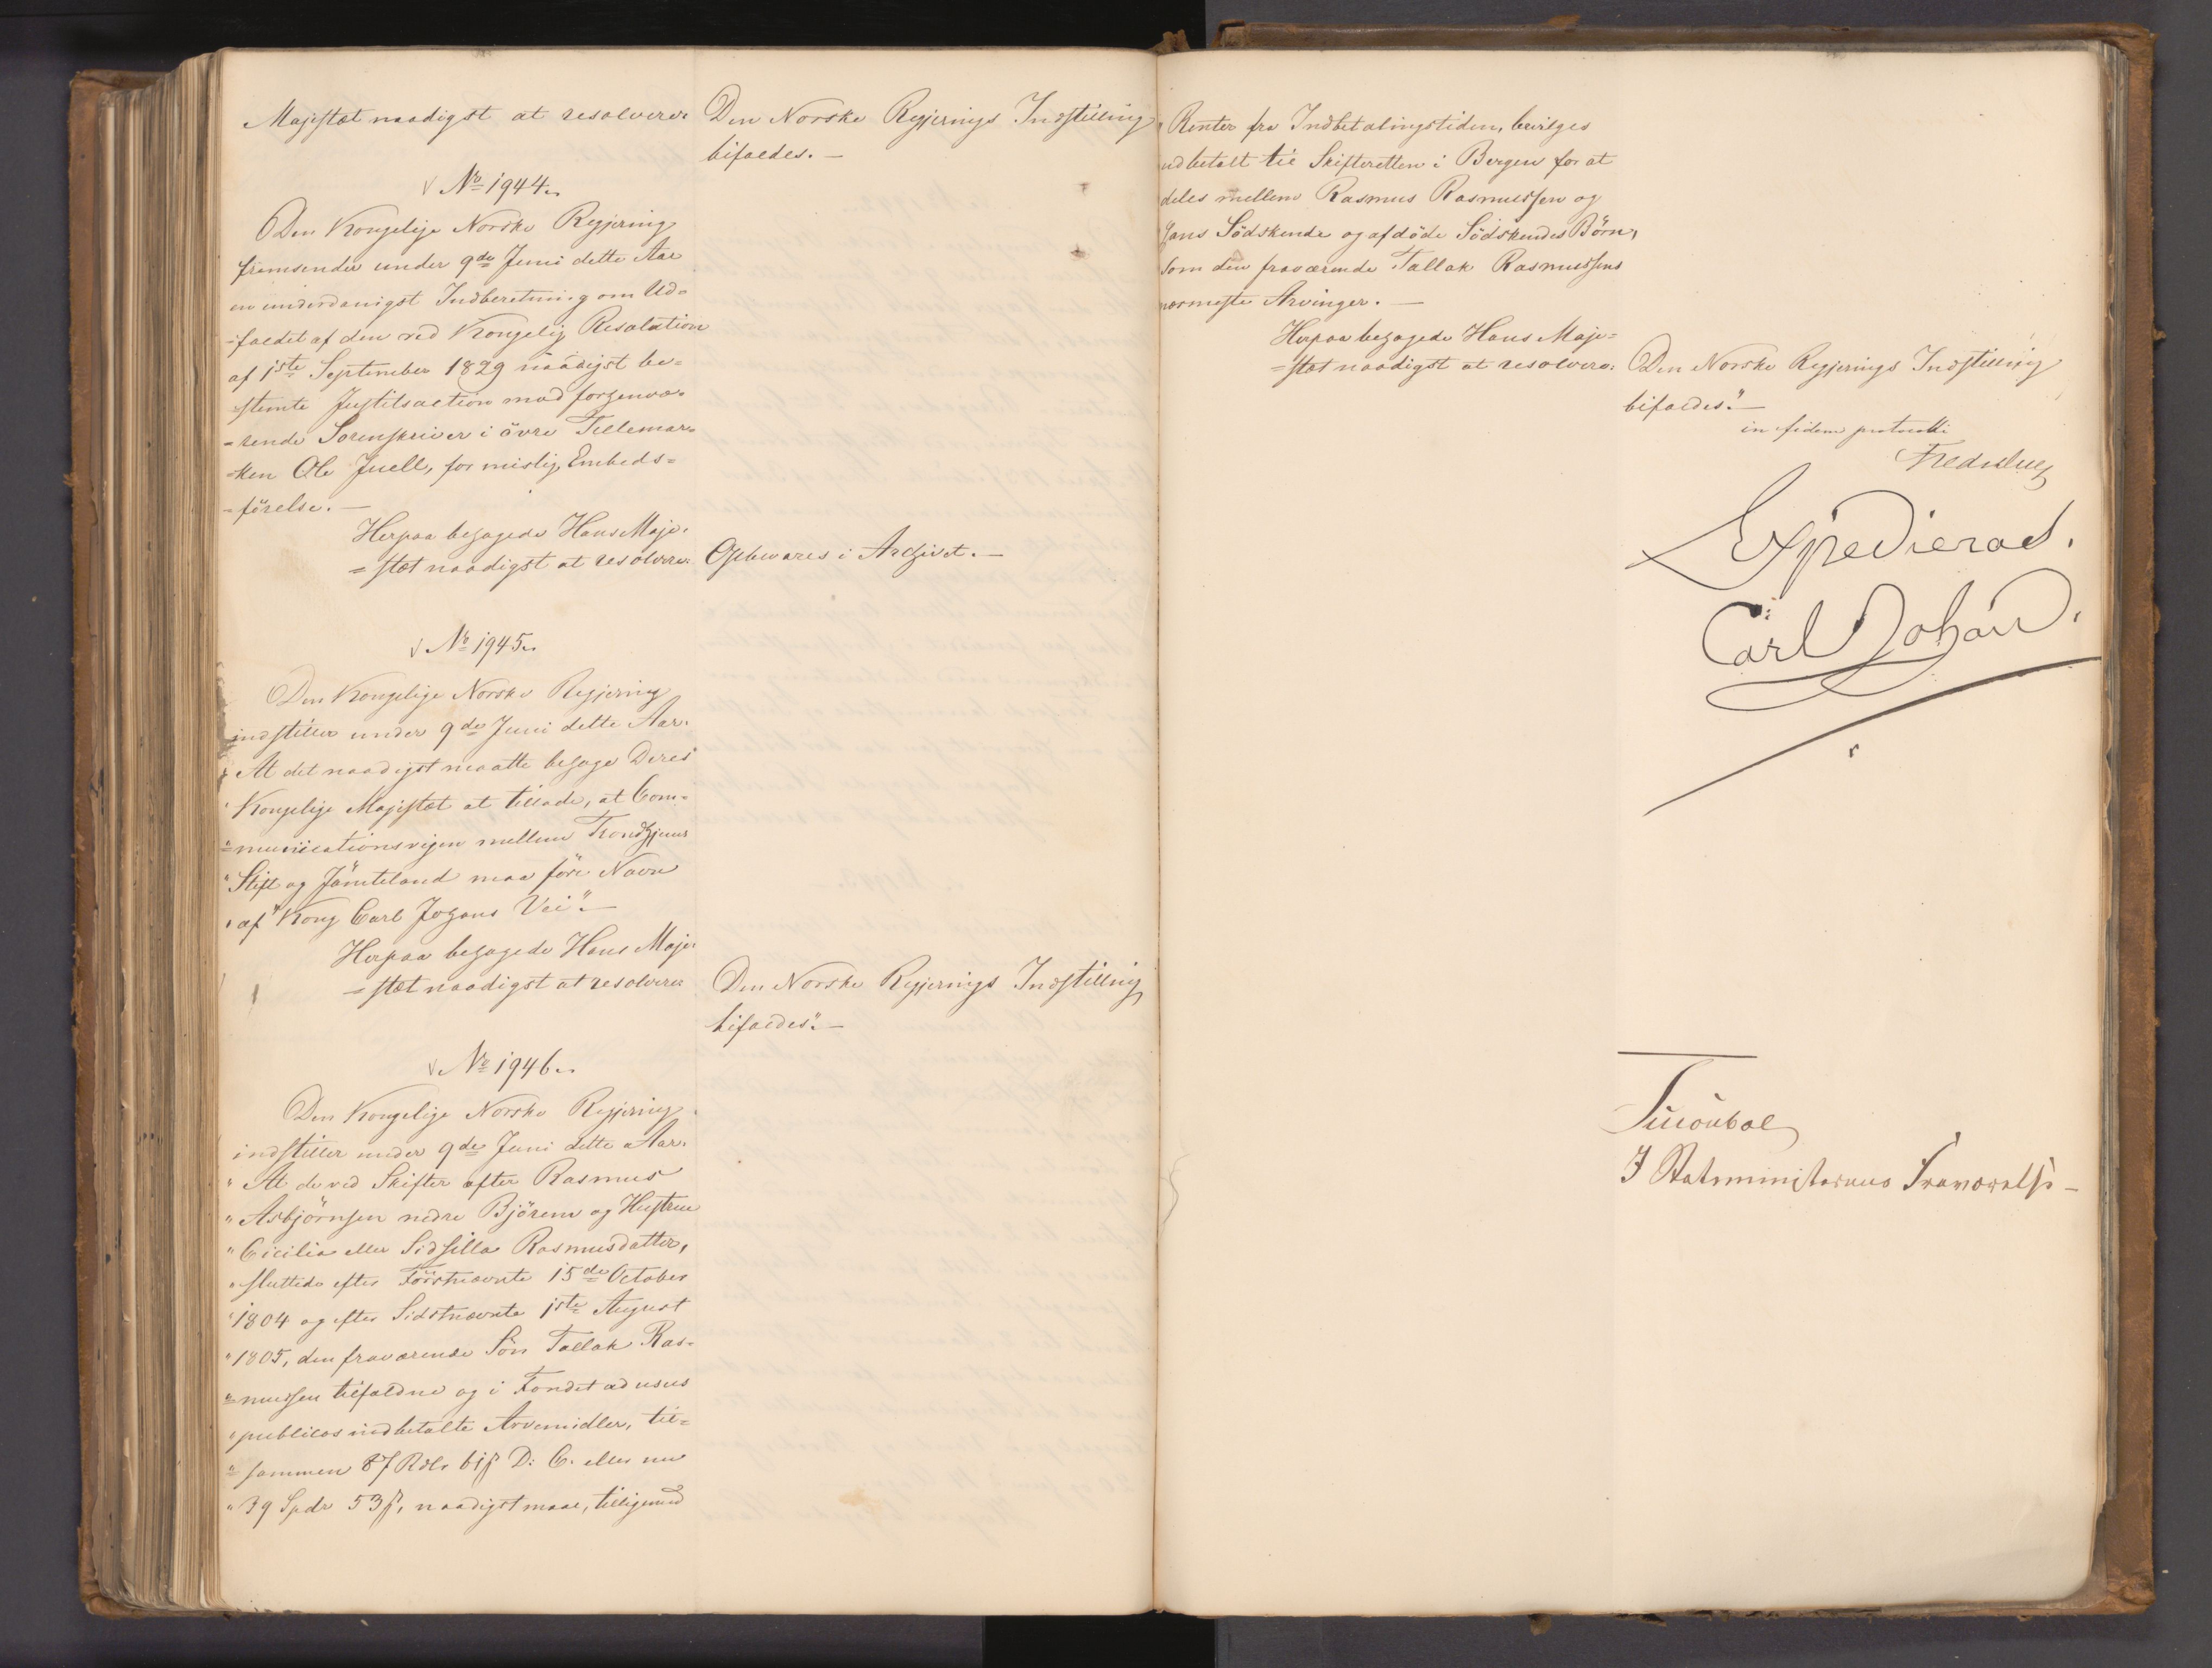 Majestæt naadigst at resolvere:
Den Norske Regjerings Indstilling
bifaldes. —
No 1944.
Den Kongelige Norske Regjering
fremsender under 9de Juni dette Aar
en underdanigst Indberetning om Ud-
-faldet af den ved Kongelig Resolution
af 1ste September 1829 naadigst be-
-stemte Justitsaction mod forhenvæ-
-rende Sorenskriver i övre Tellemar-
-ken Ole Juell, for mislig Embeds-
-förelse. —
Herpaa behagede Hans Maje-
-stæt naadigst at resolvere:
Opbevares i Archivet. —
No 1945.
Den Kongelige Norske Regjering
indstiller under 9de Juni dette Aar:
" At det naadigst maatte behage Deres
" Kongelige Majestæt at tillade, at Com-
"=municationsveien mellem Trondhjems
" Stift og Jämteland maa före Navn
" af "Kong Carl Johans Vei". —
Herpaa behagede Hans Maje-
=stæt naadigst at resolvere:
Den Norske Regjerings Indstilling
bifaldes". —
No 1946.
Den Kongelige Norske Regjering
indstiller under 9de Juni dette Aar:
" At de ved Skifter efter Rasmus
" Asbjörnsen nedre Björem og Hustrue
" Cicilia eller Sidsilla Rasmusdatter,
" sluttede efter Förstnævnte 15de October
" 1804 og efter Sidstnævnte 1ste August
" 1805, den fraværende Sön Tallak Ras-
"=mussen tilfaldne og i Fondet ad usus
" publicos indbetalte Arvemidler, til-
"=sammen 87 Rdlr 61 ß D: C. eller nu
" 39 Spdr 53 ß, naadigst maae, tilligemed
" Renter fra Indbetalingstiden, bevilges
udbetalt til Skifteretten i Bergen for at
deles mellem Rasmus Rasmussen og
hans Södskende og afdöde Södskendes Börn,
som den fraværende Tallak Rasmussens
nærmeste Arvinger. —
Herpaa behagede Hans Maje-
=stæt naadigst at resolvere:
Den Norske Regjerings Indstilling
bifaldes". —
in fidem protocolli
Expedieras.
Carl Johan.
I Statsministerens Fraværelse —